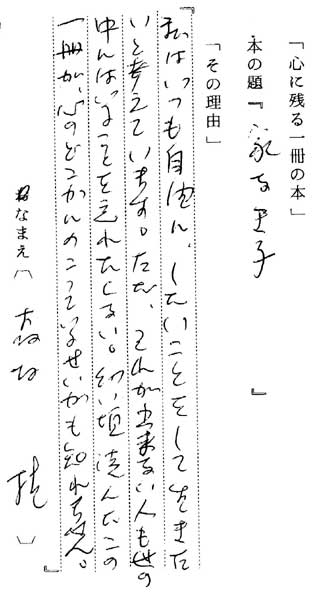 「心に残る一冊の本」
本の題『家なき子』
「その理由」
『私はいつも自由に、したいことをして生きた
いと考えています。ただ、それが出来ない人も世の
中にはいることを忘れたくない。幼い頃読んだこの
一冊が、心のどこかにのこっているせいかも知れません。』
おなまえ〔 〕